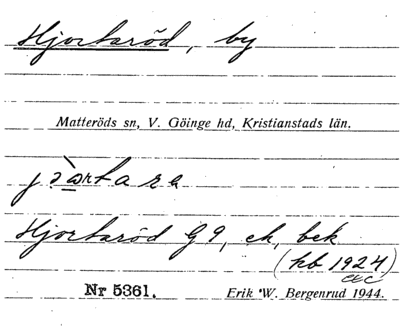 Hjortaröd, by
Matteröds sn, V. Göinge hd, Kristianstads län.
Hjortaröd G9, ek, bek
(hb 1924)
etc
Nr 5361.
Erik W. Bergenrud 1944.